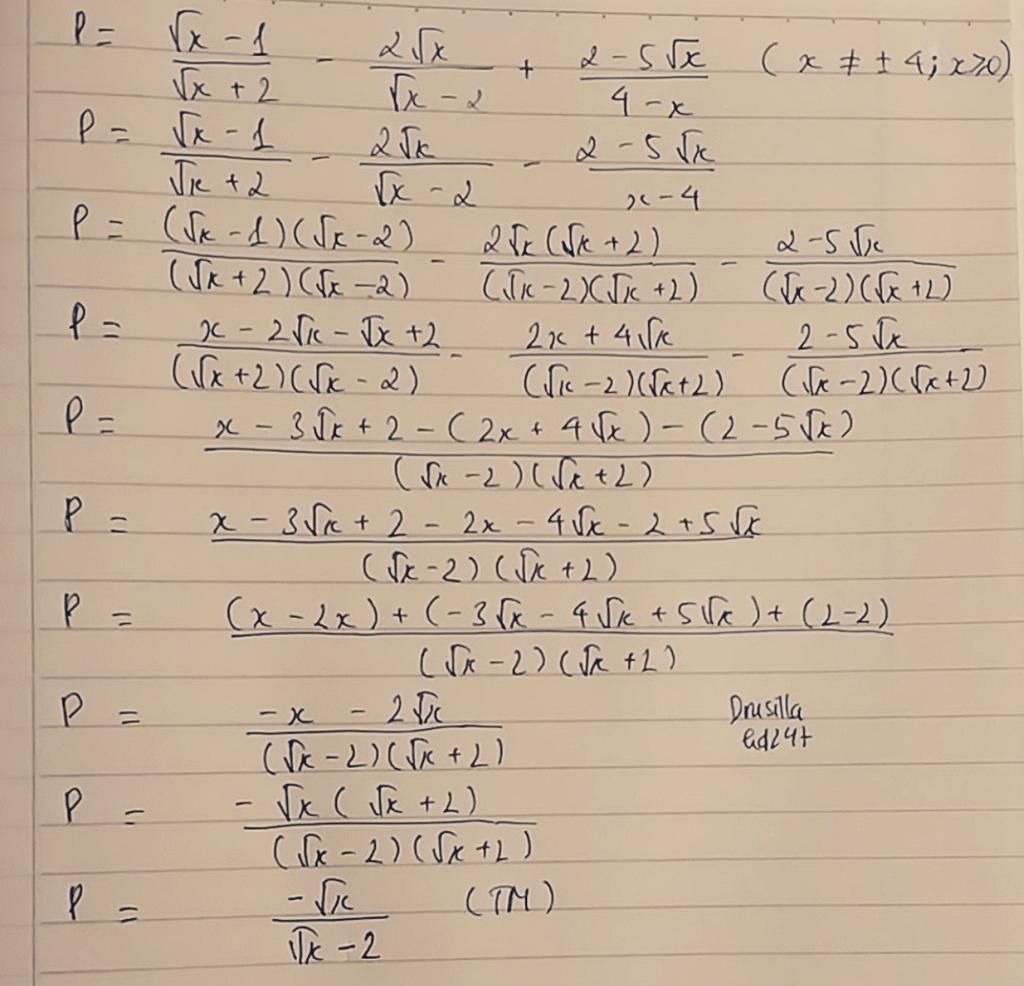 P = (√x - 1)/(√x + 2) - (2√x)/(√x - 2) + (2 - 5√x)/(4 - x) (x ≠ ± 4; x ≥ 0)
P = (√x - 1)/(√x + 2) - (2√x)/(√x - 2) - (2 - 5√x)/(x - 4)
P = ((√x - 1)(√x - 2))/((√x + 2)(√x - 2)) - (2√x(√x + 2))/((√x - 2)(√x + 2)) - (2 - 5√x)/((√x - 2)(√x + 2))
P = (x - 2√x - √x + 2)/((√x + 2)(√x - 2)) - (2x + 4√x)/((√x - 2)(√x + 2)) - (2 - 5√x)/((√x - 2)(√x + 2))
P = (x - 3√x + 2 - (2x + 4√x) - (2 - 5√x))/((√x - 2)(√x + 2))
P = (x - 3√x + 2 - 2x - 4√x - 2 + 5√x)/((√x - 2)(√x + 2))
P = ((x - 2x) + (-3√x - 4√x + 5√x) + (2 - 2))/((√x - 2)(√x + 2))
P = (-x - 2√x)/((√x - 2)(√x + 2))
Drusilla
P = (-√x(√x + 2))/((√x - 2)(√x + 2))
P = (-√x)/(√x - 2) (TM)